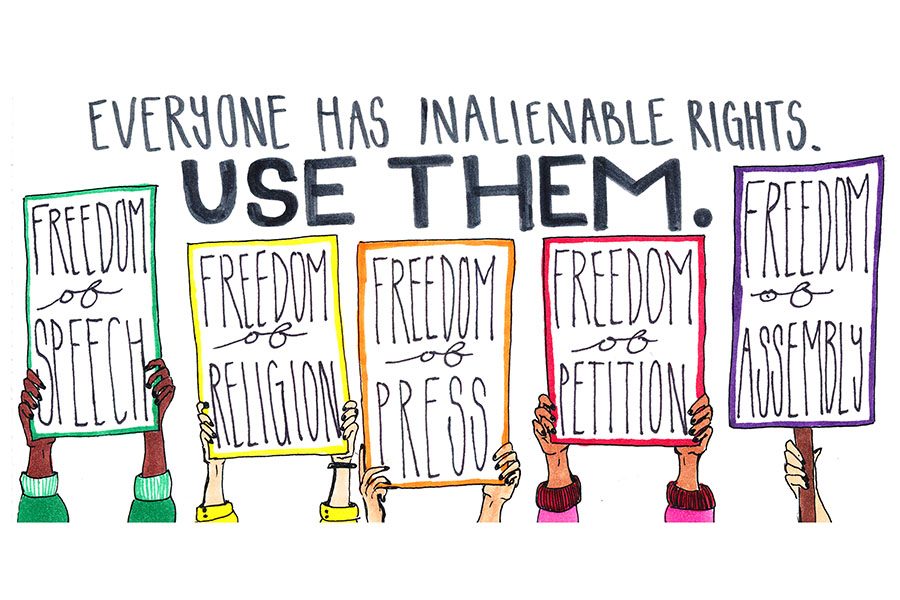 EVERYONE HAS INALIENABLE RIGHTS.
USE THEM.
FREEDOM
of
SPEECH
FREEDOM
of
RELIGION
FREEDOM
of
PRESS
FREEDOM
of
PETITION
FREEDOM
of
ASSEMBLY